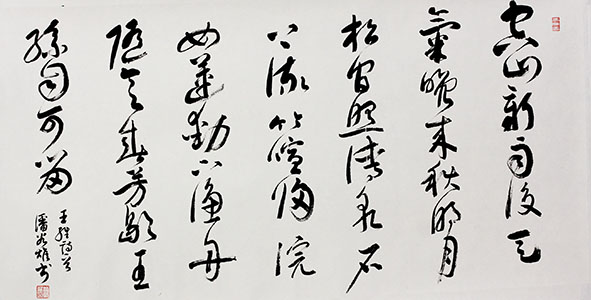 空山新雨後天
氣晚來秋明月
松間照清泉石
上流竹喧歸浣
女蓮動下漁舟
隨意春芳歇王
孫自可留
王維詩
潘